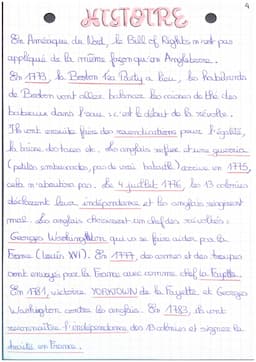 4
HISTOIRE
En Amérique du Nord, le Bill of Rights n'est pas
appliqué de la même façon qu'en Angleterre.
En 1773, la Boston Tea Party a lieu, les habitants
de Boston vont aller balancer les caisses de thé des
bateaux dans l'eau : c'est le début de la révolte.
Ils vont ensuite faire des revendications pour l'égalité,
la baisse des taxes etc. Les anglais refuse et une guerria
(petites embuscades, pas de vrai bataille) arrive en 1775,
cela n'aboutira pas. Le 4 juillet 1776, les 13 colonies
déclarent leur indépendance et les anglais réagissent
mal. Les anglais choisissent un chef des révoltés :
Georges Washington qui va se faire aider par la
France (Louis XVI). En 1777, des armes et des troupes
sont envoyés par la France avec comme chef La Fayette.
En 1781, victoire YORKTOWN de la Fayette et Georges
Washington contre les anglais. En 1783, ils vont
reconnaître l'indépendance des 13 colonies et signer le
traité en France.